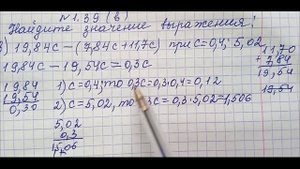 №1.39 (в)
Найдите значение выражения:
в) 19,84с – (7,84с + 11,7с) при с=0,4; 5,02
19,84с – 19,54с = 0,3с
11,70
+ 7,84
19,54
19,84
19,54
0,30
1) с=0,4, то 0,3с = 0,3·0,4 = 0,12
19,54
2) с=5,02, то 0,3с = 0,3·5,02 = 1,506
5,02
0,3